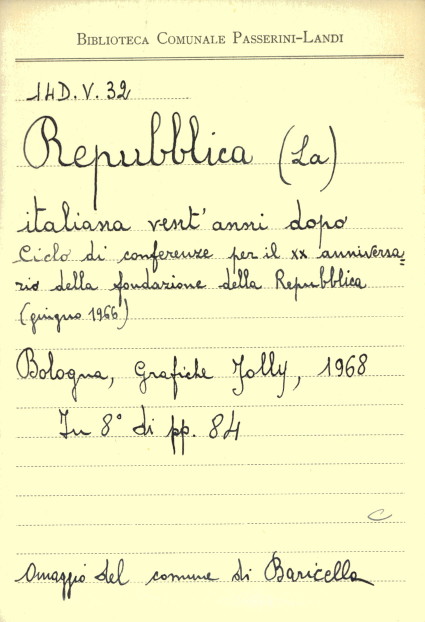 BIBLIOTECA COMUNALE PASSERINI-LANDI
14D.V.32
Repubblica (La)
italiana vent'anni dopo
Ciclo di conferenze per il xx anniversa=
rio della fondazione della Repubblica
(giugno 1966)
Bologna, Grafiche Jolly, 1968
In 8° di pp. 84
C
Omaggio del comune di Baricella